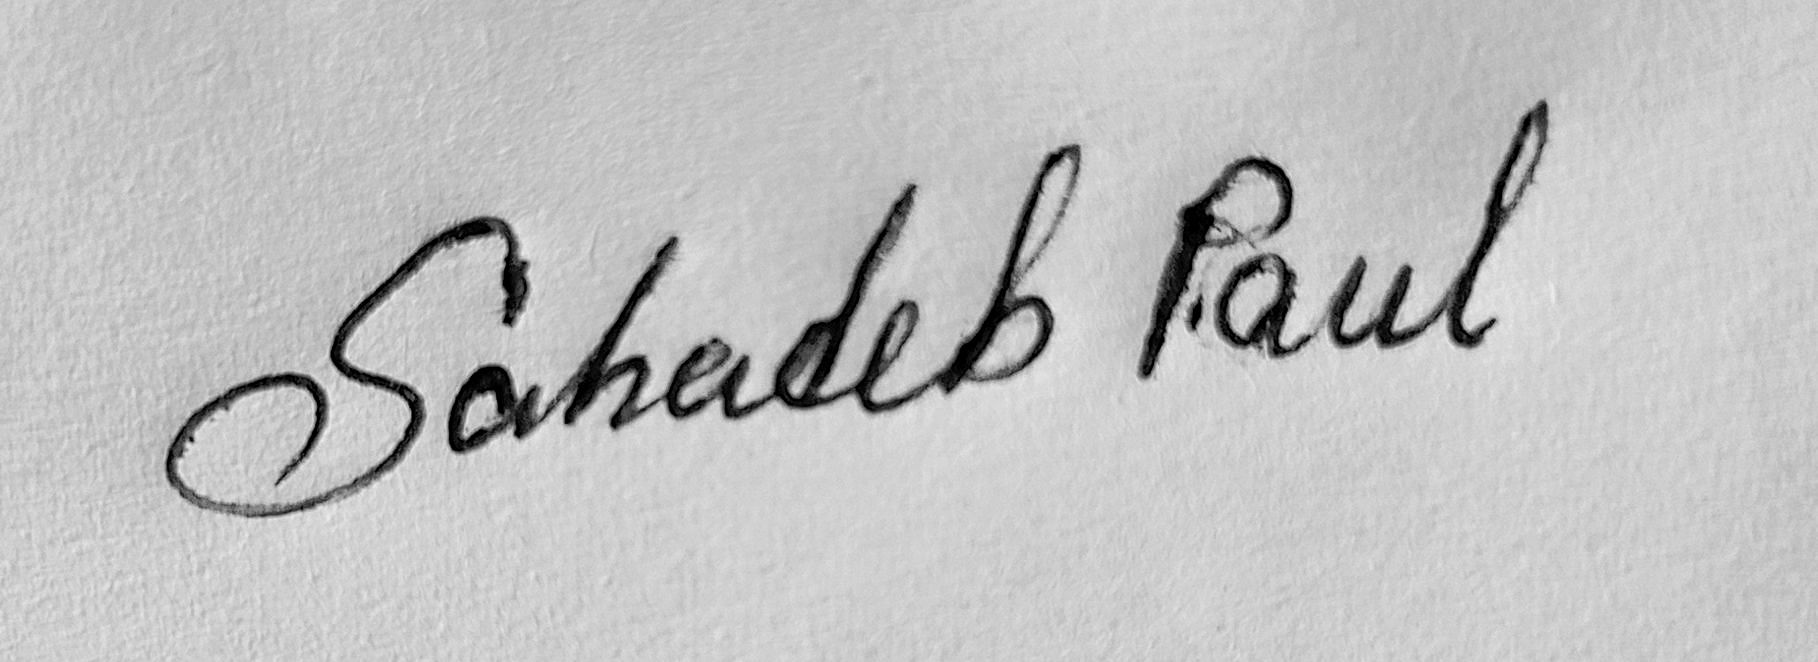 Sahadeb Paul